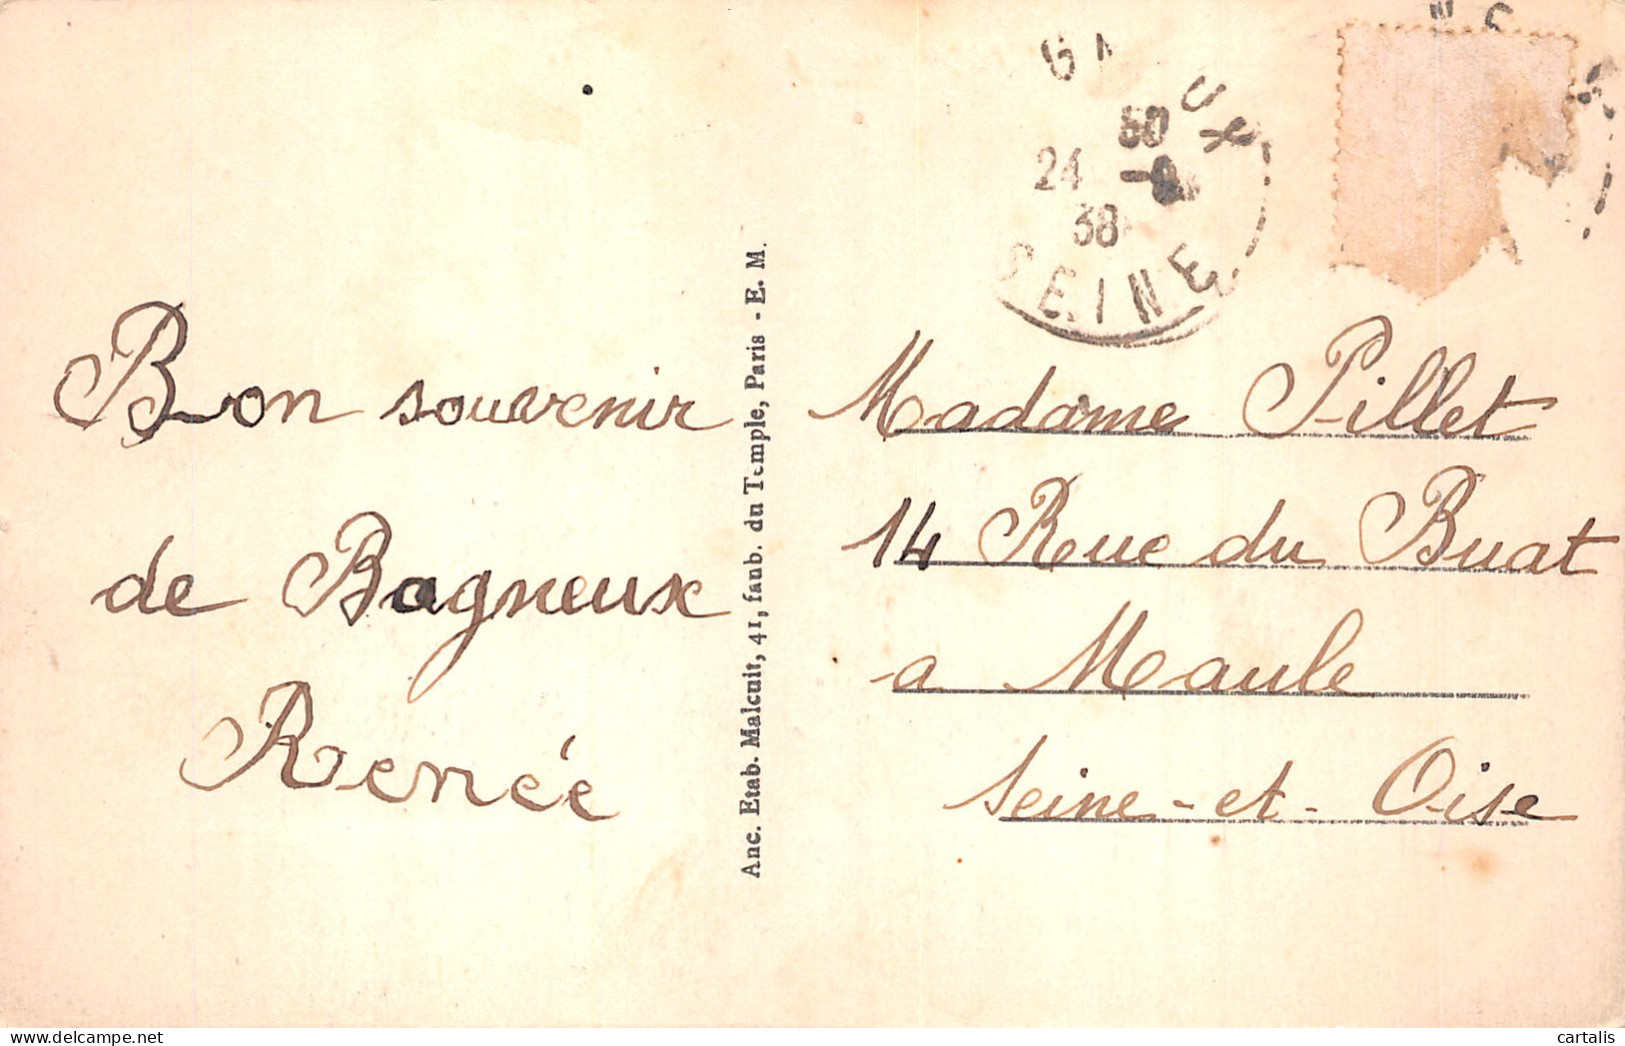 Bon souvenir
de Bagneux
Renée
Anc. Etab. Malcuit, 41, faub. du Temple, Paris - E. M.
24
38
SEINE
Madame Pillet
14 Rue du Buat
a Maule
Seine-et-Oise
cartalis
delcampe.net